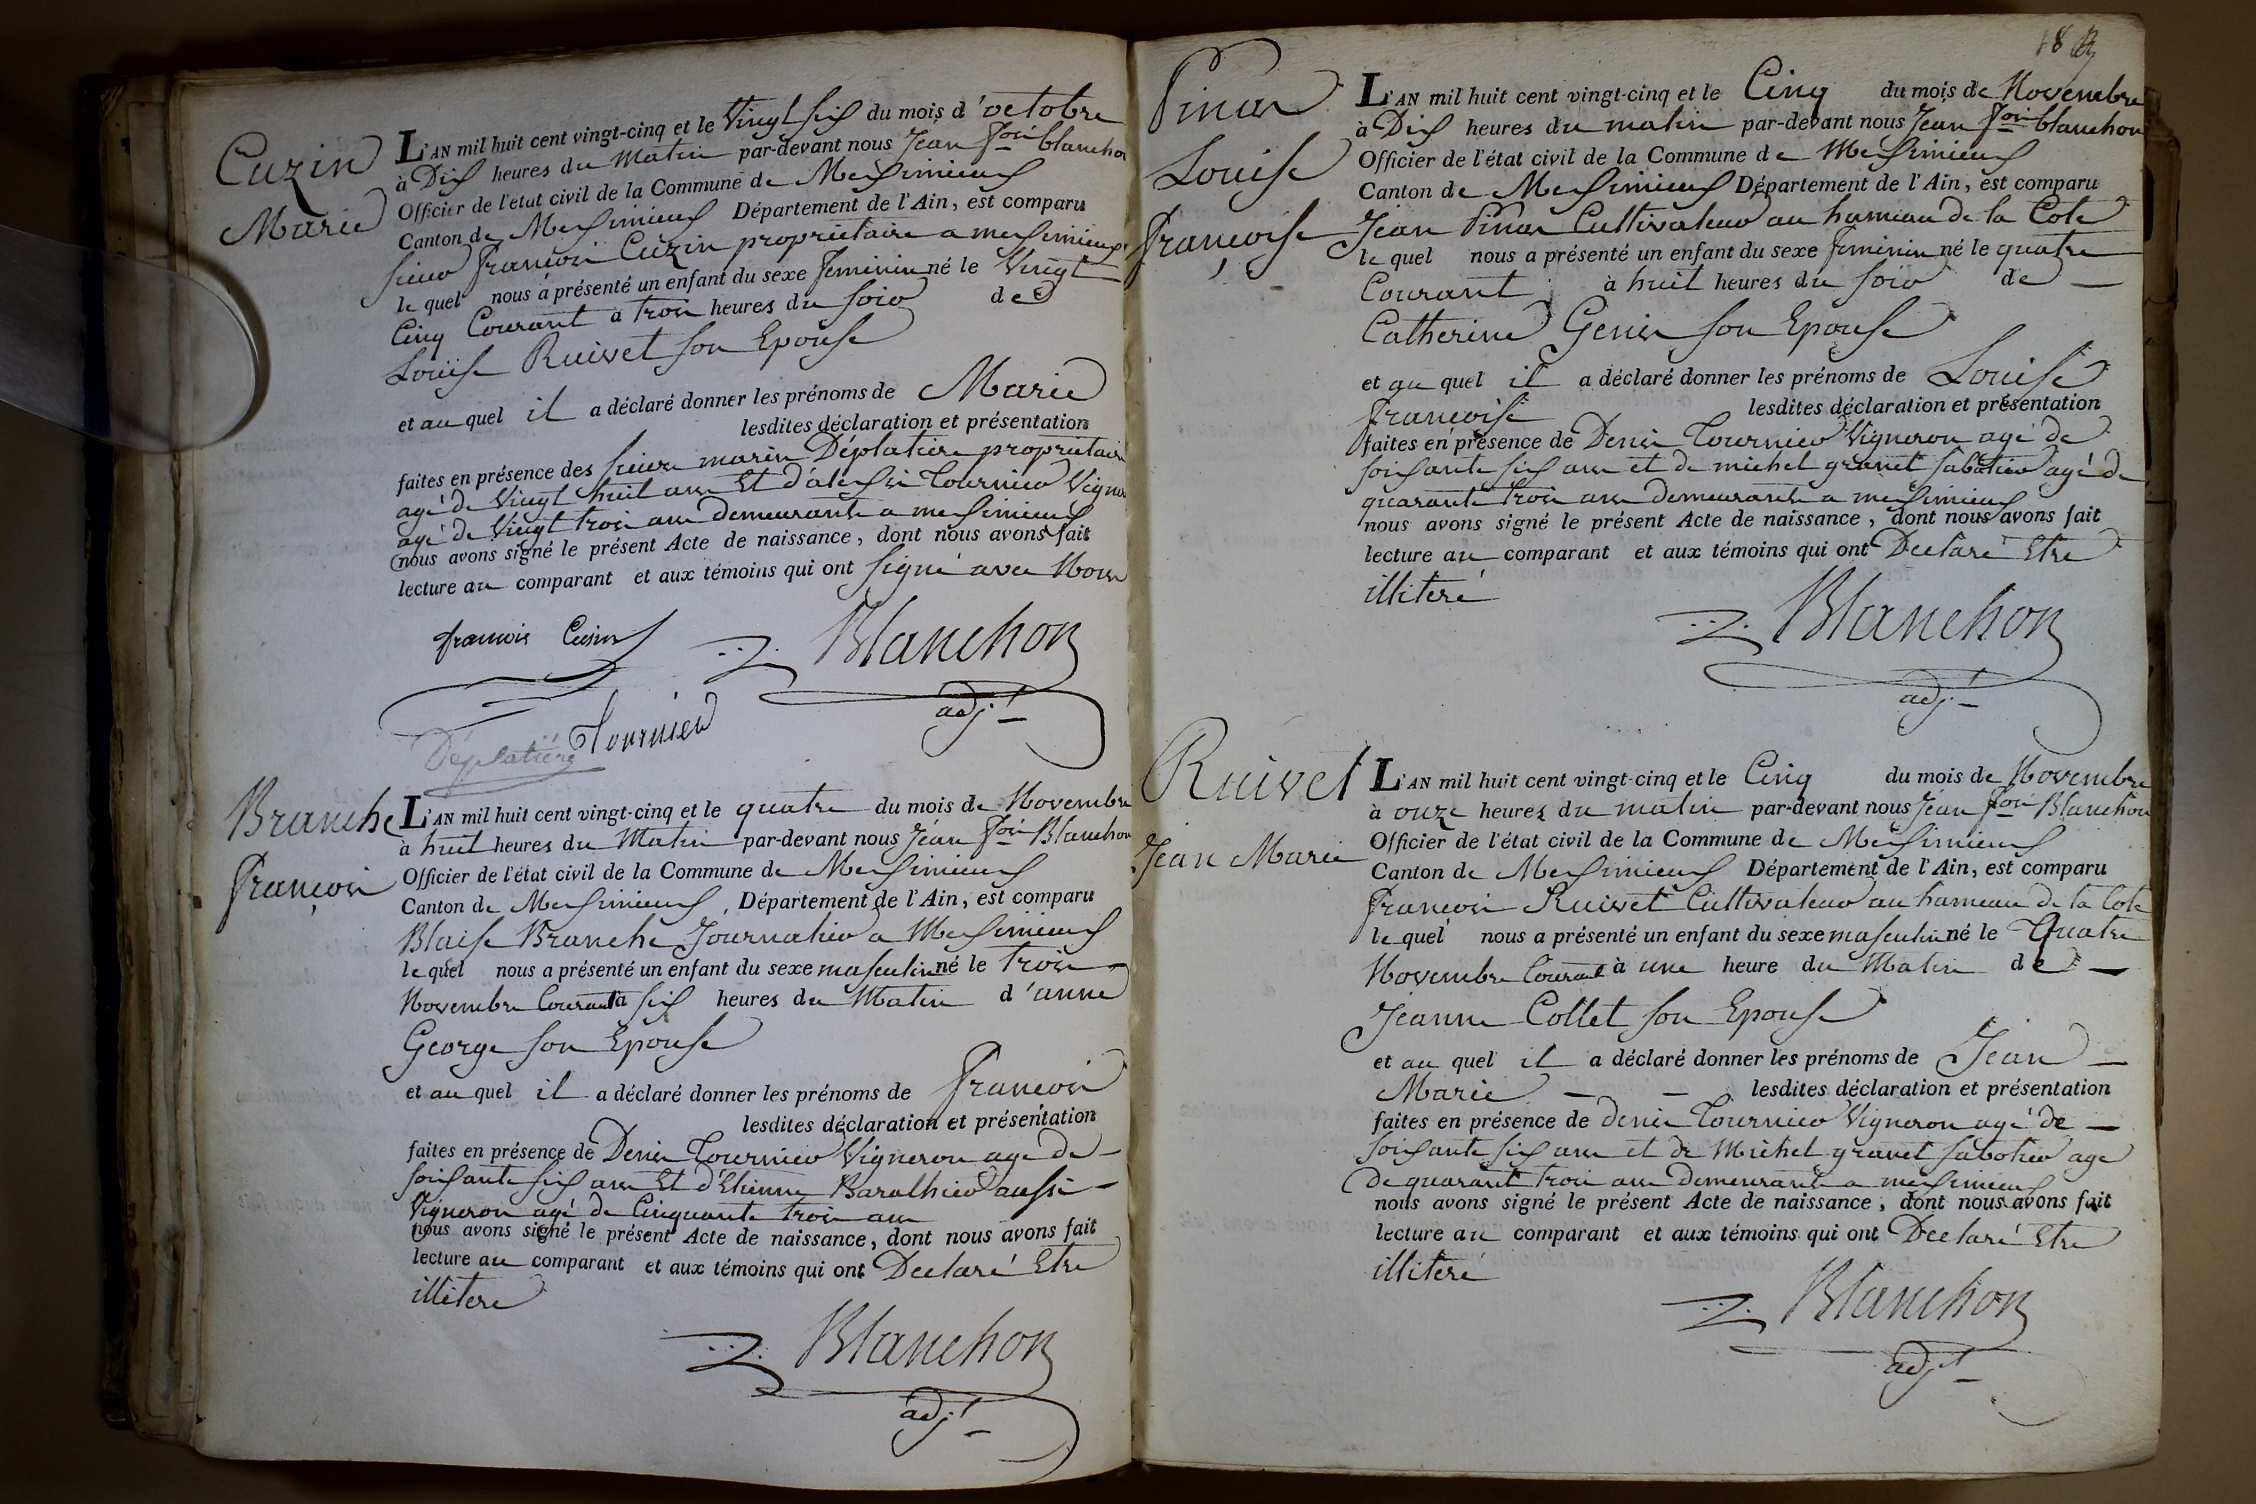 Cuzin
Marie
L'AN mil huit cent vingt-cinq et le Vingt six du mois d'octobre
à Dix heures du Matin par-devant nous Jean fois blanchon
Officier de l'état civil de la Commune de Meximieux
Canton de Meximieux Département de l'Ain, est comparu
sieur françois Cuzin propriétaire a meximieux
le quel nous a présenté un enfant du sexe feminin né le Vingt
Cinq Courant à trois heures du soir de
Louise Ruivet son Epouse
et au quel il a déclaré donner les prénoms de Marie
lesdites déclaration et présentation
faites en présence des sieurs marin Déplatière propriétaire
agé de Vingt huit ans Et d'alexis Tournier Vigneron
agé de Vingt trois ans demeurants a meximieux
nous avons signé le présent Acte de naissance, dont nous avons fait
lecture au comparant et aux témoins qui ont signé avec Nous
françois Cusin
Blanchon
adjt
Déplatière Tournier
Branche
françois
L'AN mil huit cent vingt-cinq et le quatre du mois de Novembre
à huit heures du Matin par-devant nous Jean fois Blanchon
Officier de l'état civil de la Commune de Meximieux
Canton de Meximieux Département de l'Ain, est comparu
Blaise Branche Journalier a Meximieux
le quel nous a présenté un enfant du sexe masculin né le trois
Novembre Courant à six heures du Matin d'anne
George son Epouse
et au quel il a déclaré donner les prénoms de françois
lesdites déclaration et présentation
faites en présence de Denis Tournier Vigneron agé de
soixante six ans Et d'Etienne Baralhier aussi
Vigneron agé de Cinquante trois ans
nous avons signé le présent Acte de naissance, dont nous avons fait
lecture au comparant et aux témoins qui ont Declaré Etre
illiteré
Blanchon
adjt
18
Pinas
Louise
françoise
L'AN mil huit cent vingt-cinq et le Cinq du mois de Novembre
à Dix heures du matin par-devant nous Jean fois blanchon
Officier de l'état civil de la Commune de Meximieux
Canton de Meximieux Département de l'Ain, est comparu
Jean Pinas Cultivateur au hameau de la Cote
le quel nous a présenté un enfant du sexe feminin né le quatre
Courant à huit heures du soir de
Catherine Genis son Epouse
et au quel il a déclaré donner les prénoms de Louise
françoise lesdites déclaration et présentation
faites en présence de Denis Tournier Vigneron agé de
soixante six ans et de michel granet sabotier agé de
quarante trois ans demeurants a meximieux
nous avons signé le présent Acte de naissance, dont nous avons fait
lecture au comparant et aux témoins qui ont Declaré Etre
illiteré
Blanchon
adjt
Ruivet
Jean Marie
L'AN mil huit cent vingt-cinq et le Cinq du mois de Novembre
à onze heures du matin par-devant nous Jean fois Blanchon
Officier de l'état civil de la Commune de Meximieux
Canton de Meximieux Département de l'Ain, est comparu
françois Ruivet Cultivateur au hameau de la Cote
le quel nous a présenté un enfant du sexe masculin né le Quatre
Novembre Courant à une heure du Matin de
Jeanne Collet son Epouse
et au quel il a déclaré donner les prénoms de Jean
Marie lesdites déclaration et présentation
faites en présence de denis Tournier Vigneron agé de
soixante six ans et de Michel granet sabotier agé
de quarante trois ans demeurants a meximieux
nous avons signé le présent Acte de naissance, dont nous avons fait
lecture au comparant et aux témoins qui ont Declaré Etre
illiteré
Blanchon
adjt